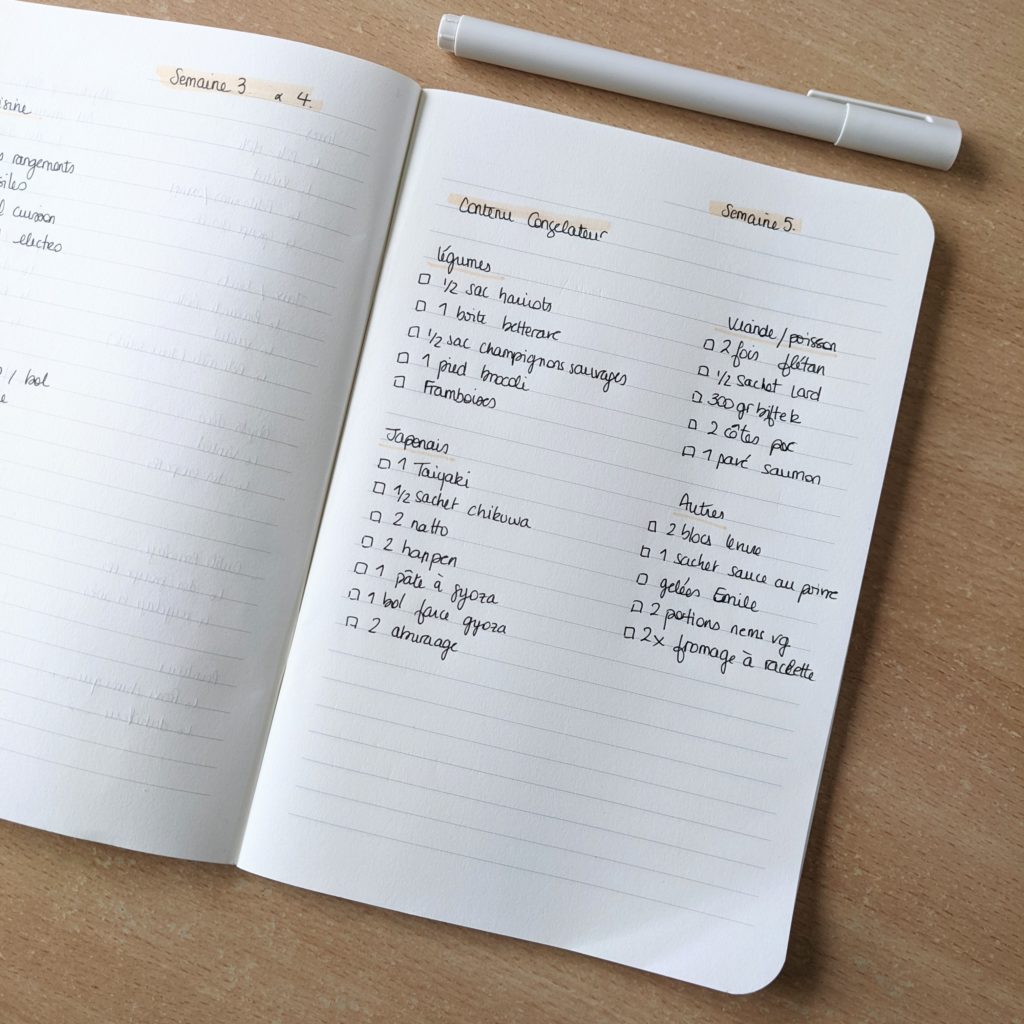 Semaine 3 à 4.
rangements
cuisson
electro
/ bol
Contenu Congelateur
Semaine 5.
légumes
□ 1/2 sac haricots
□ 1 boite betterave
□ 1/2 sac champignons sauvages
□ 1 pied brocoli
□ Framboises
Japonais
□ 1 Taiyaki
□ 1/2 sachet chikuwa
□ 2 natto
□ 2 hanpen
□ 1 pâte à gyoza
□ 1 bol farce gyoza
□ 2 aburaage
Viande / poisson
□ 2 fois flétan
□ 1/2 sachet lard
□ 300 gr biftek
□ 2 côtes porc
□ 1 pavé saumon
Autres
□ 2 blocs levure
□ 1 sachet sauce au poivre
□ gelées Emile
□ 2 portions nems vg
□ 2x fromage à raclette